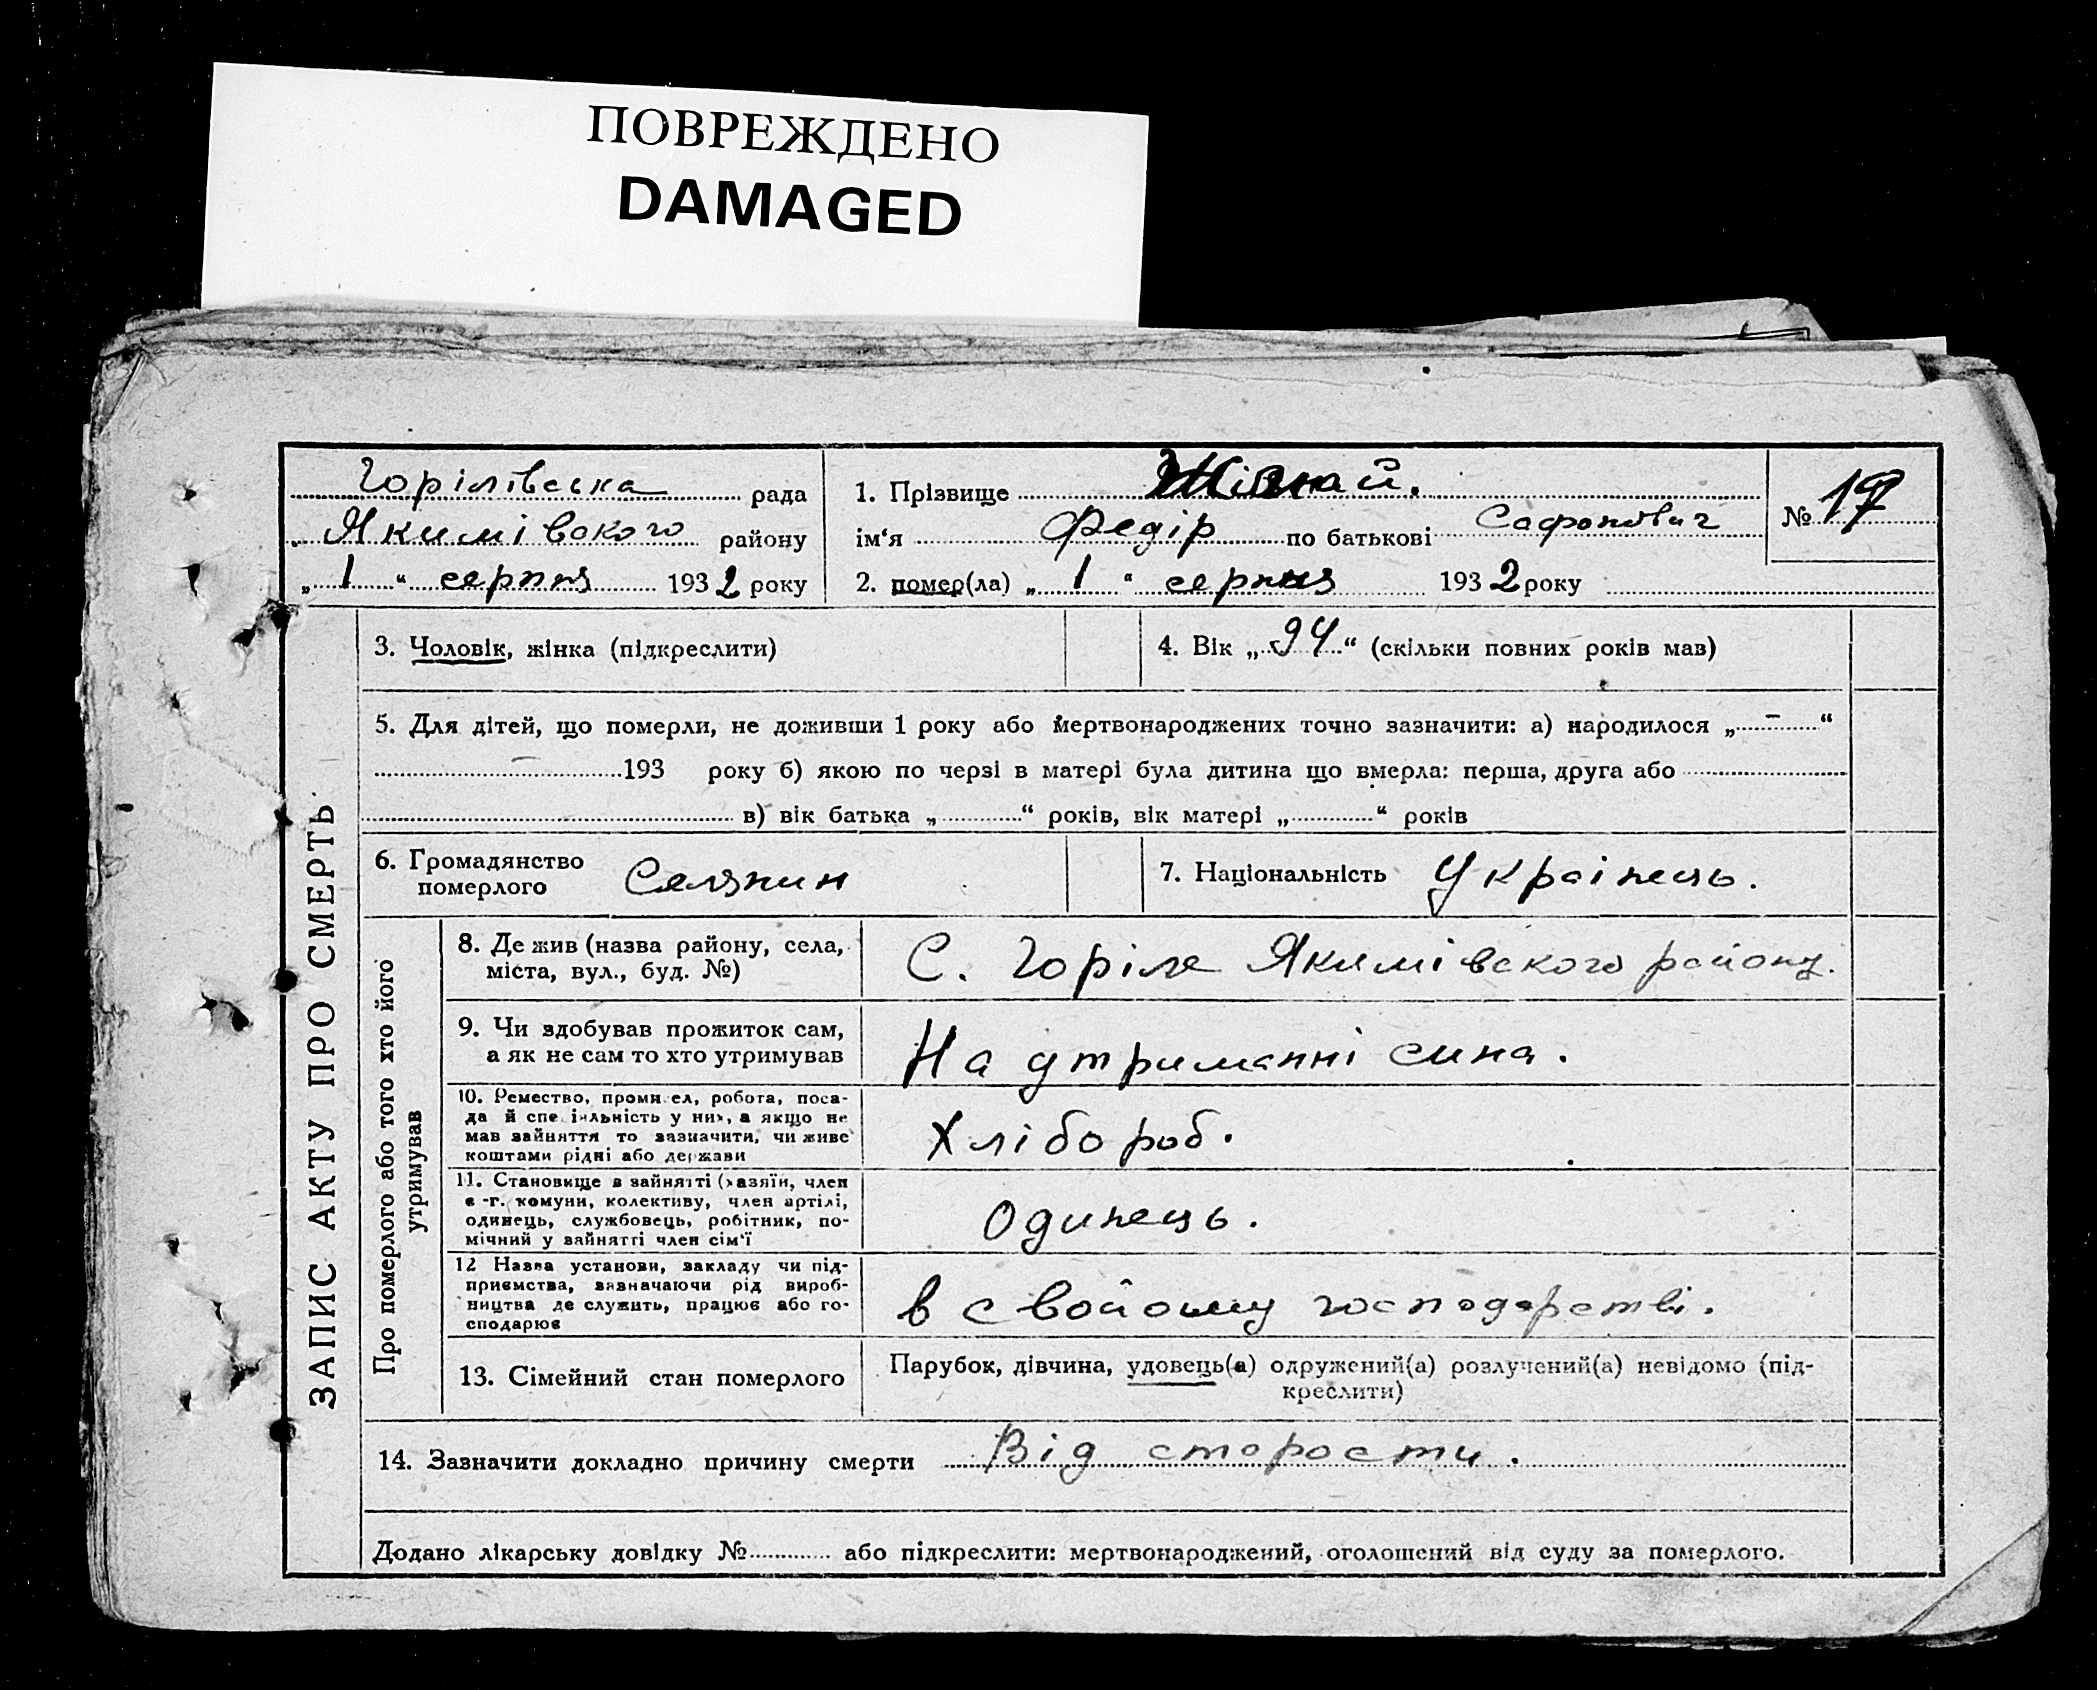 ПОВРЕЖДЕНО
DAMAGED
Горілівська рада
Якимівского району
„ 1 “ серпня 1932 року
1. Прізвище
ім'я Федір по батькові Сафонович
2. помер(ла) „ 1 “ серпня 1932 року
№ 17
3. Чоловік, жінка (підкреслити)
4. Вік „ 94 “ (скільки повних років мав)
5. Для дітей, що померли, не доживши 1 року або мертвонароджених точно зазначити: а) народилося „ – “
– 193 року б) якою по черзі в матері була дитина що вмерла: перша, друга або
в) вік батька „ “ років, вік матері „ “ років
6. Громадянство
померлого Селянин
7. Національність Українець.
ЗАПИС АКТУ ПРО СМЕРТЬ
Про померлого або того хто його
утримував
8. Де жив (назва району, села,
міста, вул., буд. №)
С. Горіле Якимівского району.
9. Чи здобував прожиток сам,
а як не сам то хто утримував
На утриманні сина.
10. Ремество, промисел, робота, поса-
да й спеціяльність у них, а якщо не
мав зайняття то зазначити, чи живе
коштами рідні або держави
Хлібороб.
11. Становище в зайнятті (хазяїн, член
с.-г. комуни, колективу, член артілі,
одинець, службовець, робітник, по-
мічний у зайнятті член сім'ї
Одинець.
12 Назва установи, закладу чи під-
приємства, зазначаючи рід вироб-
ництва де служить, працює або го-
сподарює
в свойому господарстві.
13. Сімейний стан померлого
Парубок, дівчина, удовець(а) одружений(а) розлучений(а) невідомо (під-
креслити)
14. Зазначити докладно причину смерти Від старости.
Додано лікарську довідку № або підкреслити: мертвонароджений, оголошений від суду за померлого.